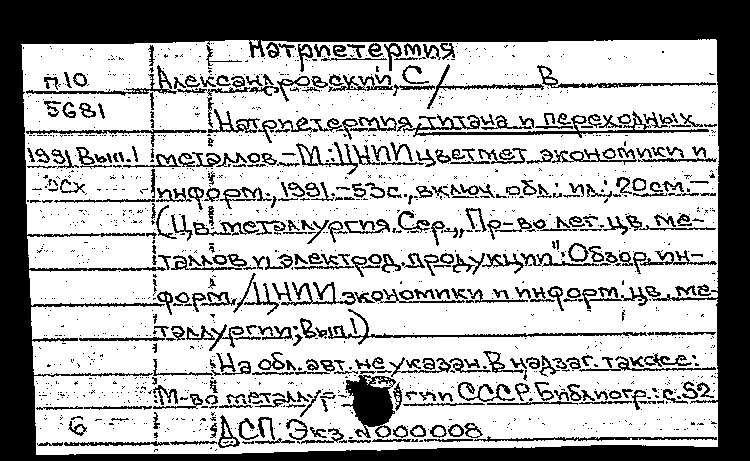 Натриетермия
п10 Александровский, С В
5681 Натриетермия, титана и переходных
1991 Вып.1 металлов – М.: ЦНИИцветмет экономики и
информ., 1991.–53с., включ. обл.: ил.; 20см.–
(Цв. металлургия. Сер. „Пр-во лег. цв. ме-
таллов и электрод. продукции": Обзор. ин-
форм. / ЦНИИ экономики и информ. цв. ме-
таллургии; Вып.1)
На обл. авт. не указан. В надзаг. также:
М-во металлургии СССР. Библиогр.: с. 52
6 ДСП. Экз. N000008.